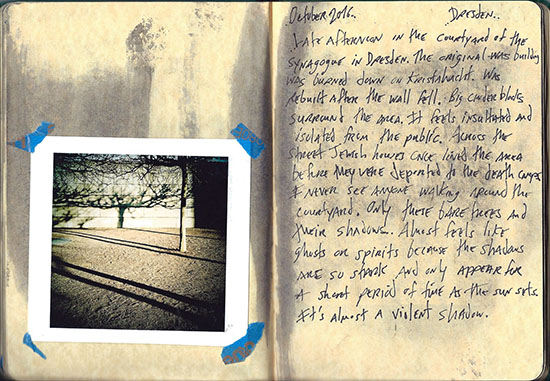 October 2016. Dresden.
Late afternoon in the courtyard of the
synagogue in Dresden. The original was building
was burned down on Kristalnacht. Was
rebuilt after the wall fell. Big cinder blocks
surround the area. It feels insultated and
isolated from the public. Across the
street Jewish homes once lined the area
before they were deported to the death camps
I never see anyone walking around the
courtyard. Only these bare trees and
their shadows. Almost feels like
ghosts or spirits because the shadows
are so stark and only appear for
a short period of time as the sun sets.
It's almost a violent shadow.